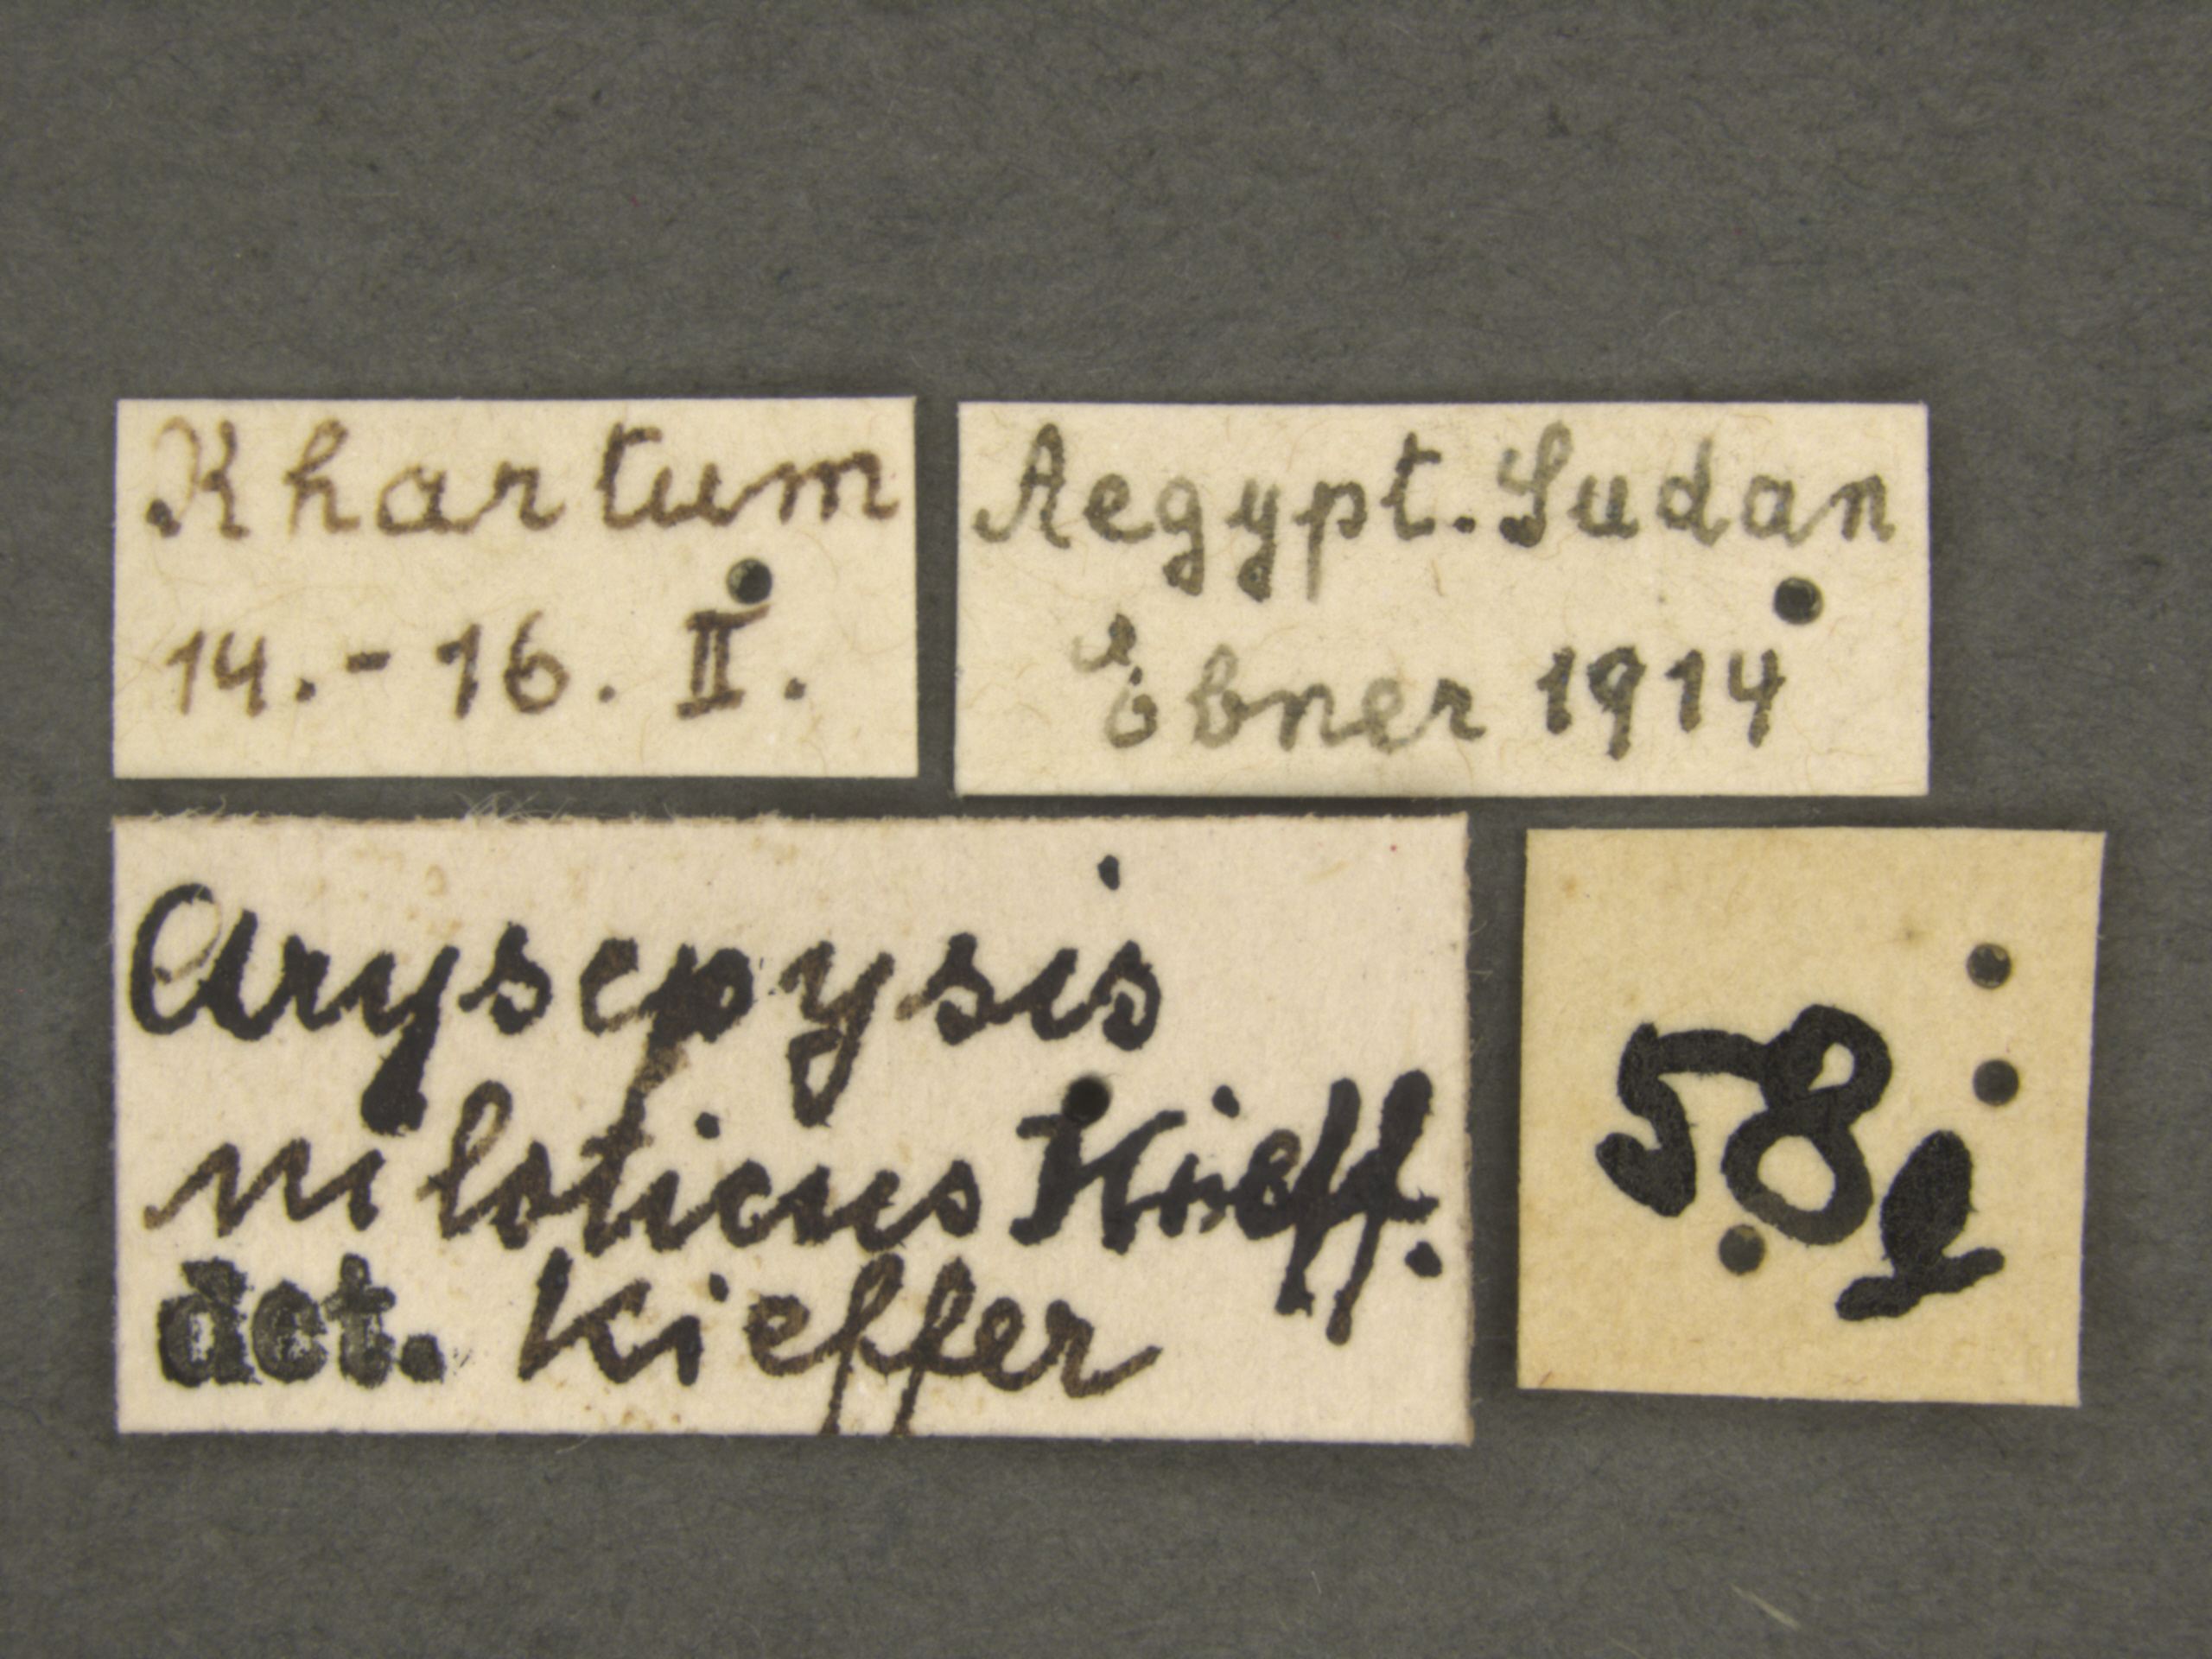 Khartum
14.-16. II.
Aegypt. Sudan
Ebner 1914
Arysepysis
niloticus Kieff.
det. Kieffer
58